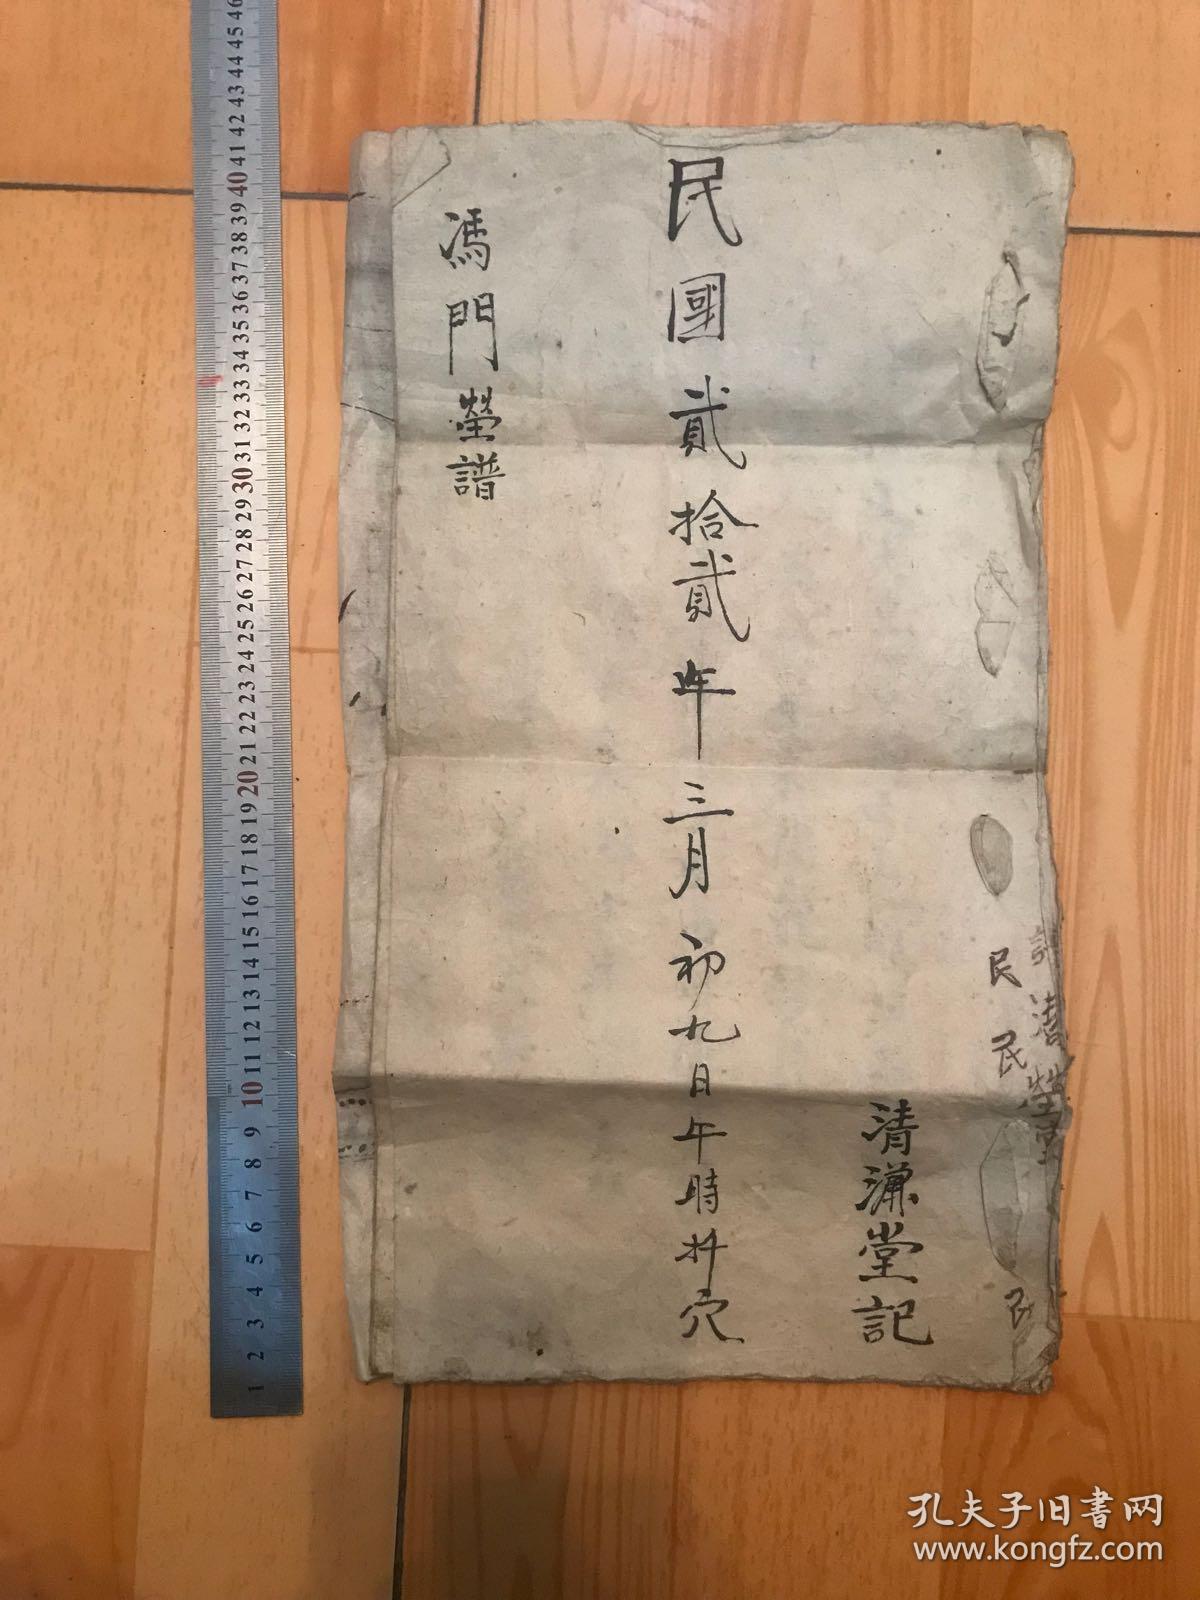 民民
民
清溓堂記
民國貳拾貳年三月初九日午時扦穴
馮門塋譜
1 2 3 4 5 6 7 8 9 10 11 12 13 14 15 16 17 18 19 20 21 22 23 24 25 26 27 28 29 30 31 32 33 34 35 36 37 38 39 40 41 42 43 44 45 46
孔夫子旧書网
www.kongfz.com